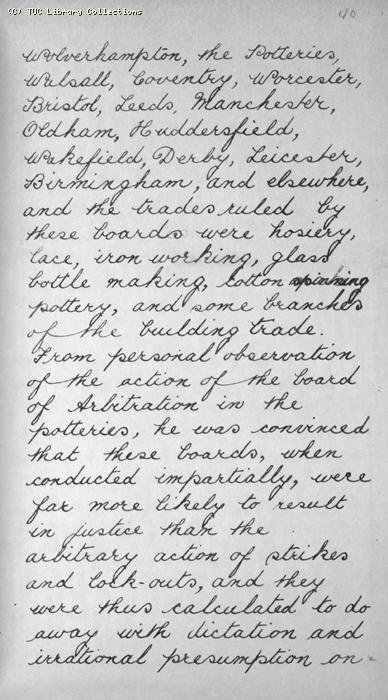 (C) TUC Library Collections
40
Wolverhampton, the Potteries,
Walsall, Coventry, Worcester,
Bristol, Leeds, Manchester,
Oldham, Huddersfield,
Wakefield, Derby, Leicester,
Birmingham, and elsewhere,
and the trades ruled by
these boards were hosiery,
lace, iron working, glass
bottle making, cotton spinning
pottery, and some branches
of the building trade.
From personal observation
of the action of the board
of Arbitration in the
potteries, he was convinced
that these boards, when
conducted impartially, were
far more likely to result
in justice than the
arbitrary action of strikes
and lock-outs, and they
were thus calculated to do
away with dictation and
irrational presumption on